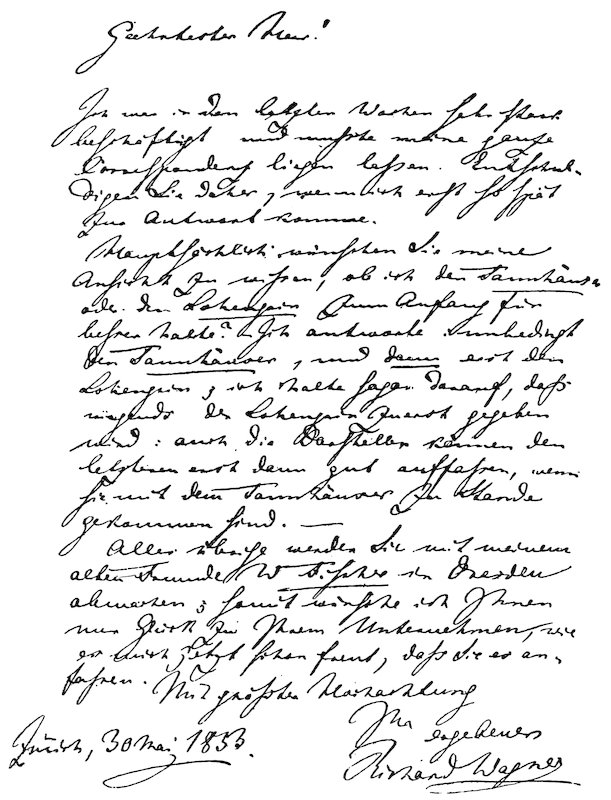 Geehrtester Herr!
Ich war in den letzten Wochen sehr stark
beschäftigt und mußte meine ganze
Correspondenz liegen lassen. Entschul-
digen Sie daher, wenn ich erst so spät
zur Antwort komme.
Hauptsächlich wünschen Sie meine
Ansicht zu wissen, ob ich den Tannhäuser
oder den Lohengrin zum Anfang für
besser halte? Ich antworte: unbedingt
den Tannhäuser, und dann erst den
Lohengrin; ich halte sogar darauf, daß
nirgends der Lohengrin zuerst gegeben
wird: auch die Darsteller können den
letzteren erst dann gut auffassen, wenn
sie mit dem Tannhäuser zu Stande
gekommen sind. —
Alles übrige werden Sie mit meinem
alten Freunde W Fischer in Dresden
abmachen; somit wünsche ich Ihnen
nur Glück zu Ihrem Unternehmen, wie
es mich jetzt schon freut, daß Sie es an-
fassen. Mit größter Hochachtung
Ihr ergebener
Zürich, 30 Mai 1853.
Richard Wagner